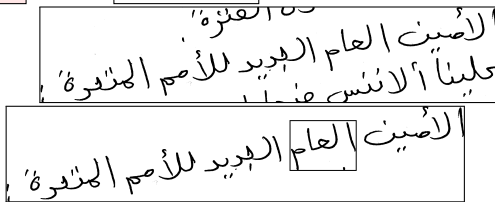 الأمين العام الجديد للأمم المتحدة،
علينا ألا ننسى
الأمين العام الجديد للأمم المتحدة،